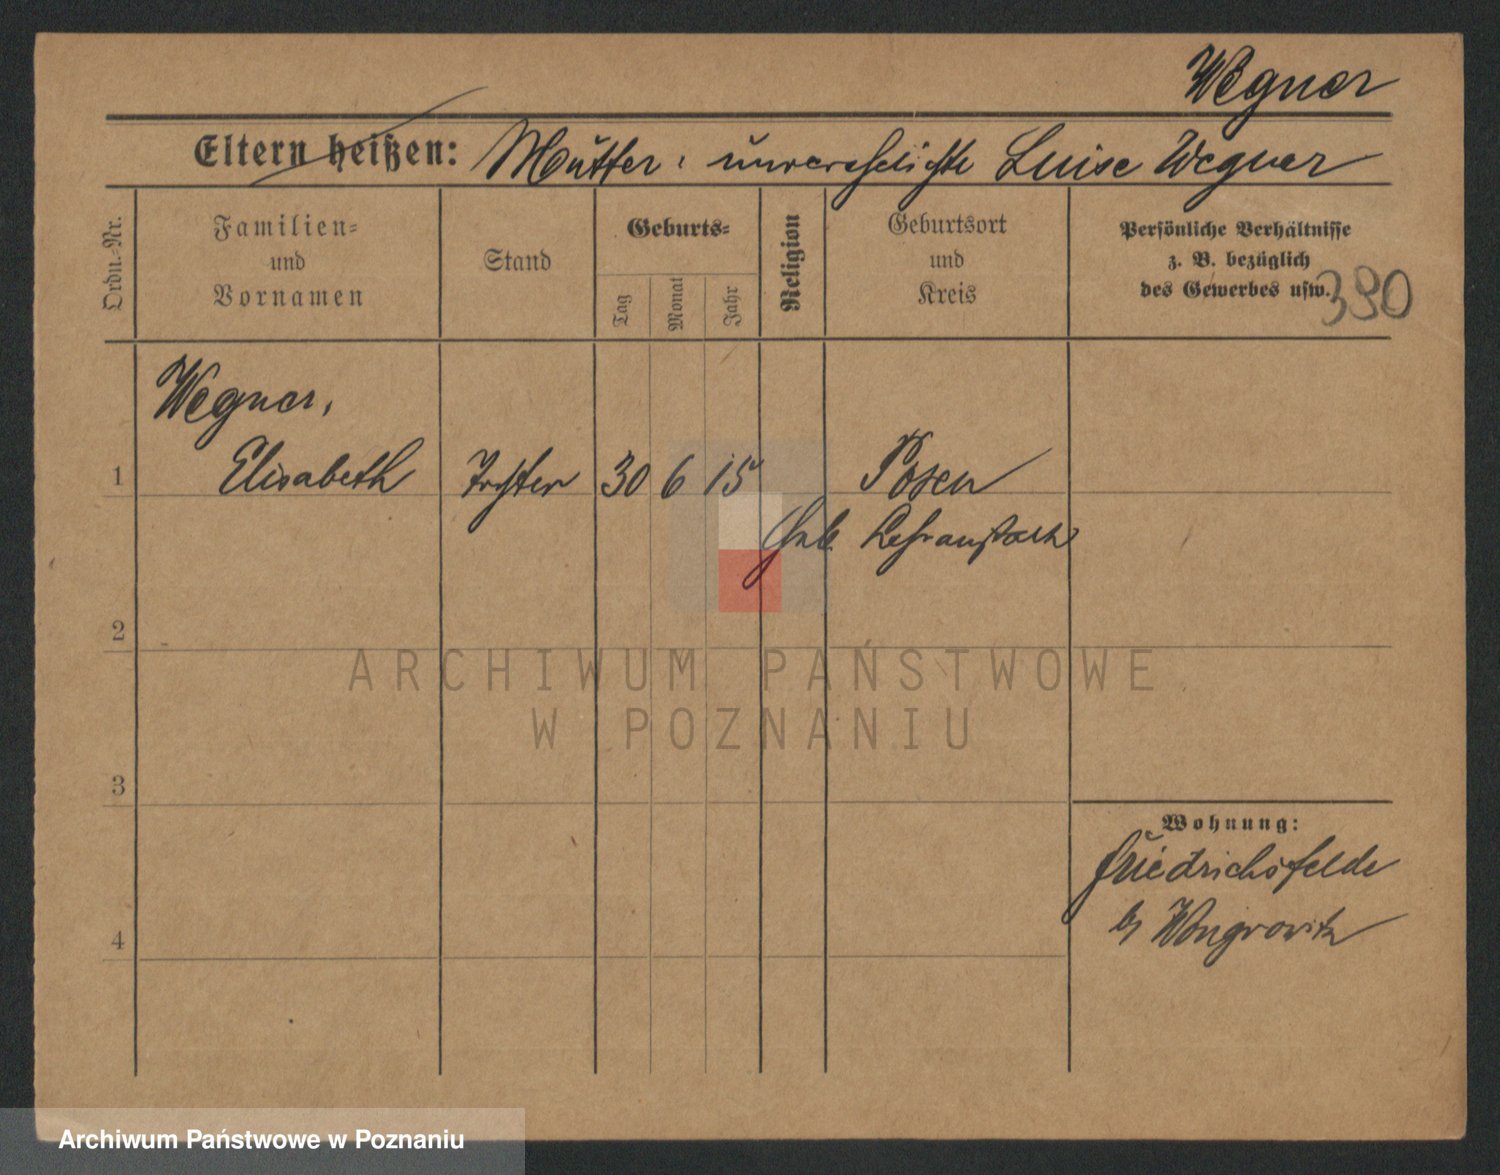 Wegner
Eltern heißen: Mutter: unverehelichte Luise Wegner
Ordn.-Nr.
Familien-
und
Vornamen
Stand
Geburts-
Tag
Monat
Jahr
Religion
Geburtsort
und
Kreis
Persönliche Verhältnisse
z. B. bezüglich
des Gewerbes usw.
390
Wegner,
1 Elisabeth Tochter 30 6 15 Posen
Heb. Lehranstalt
2
ARCHIWUM PAŃSTWOWE
W POZNANIU
3
Wohnung:
Friedrichsfelde
b/ Wongrowitz
4
Archiwum Państwowe w Poznaniu